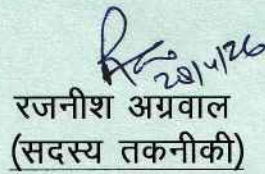 28/4/26
रजनीश अग्रवाल
(सदस्य तकनीकी)